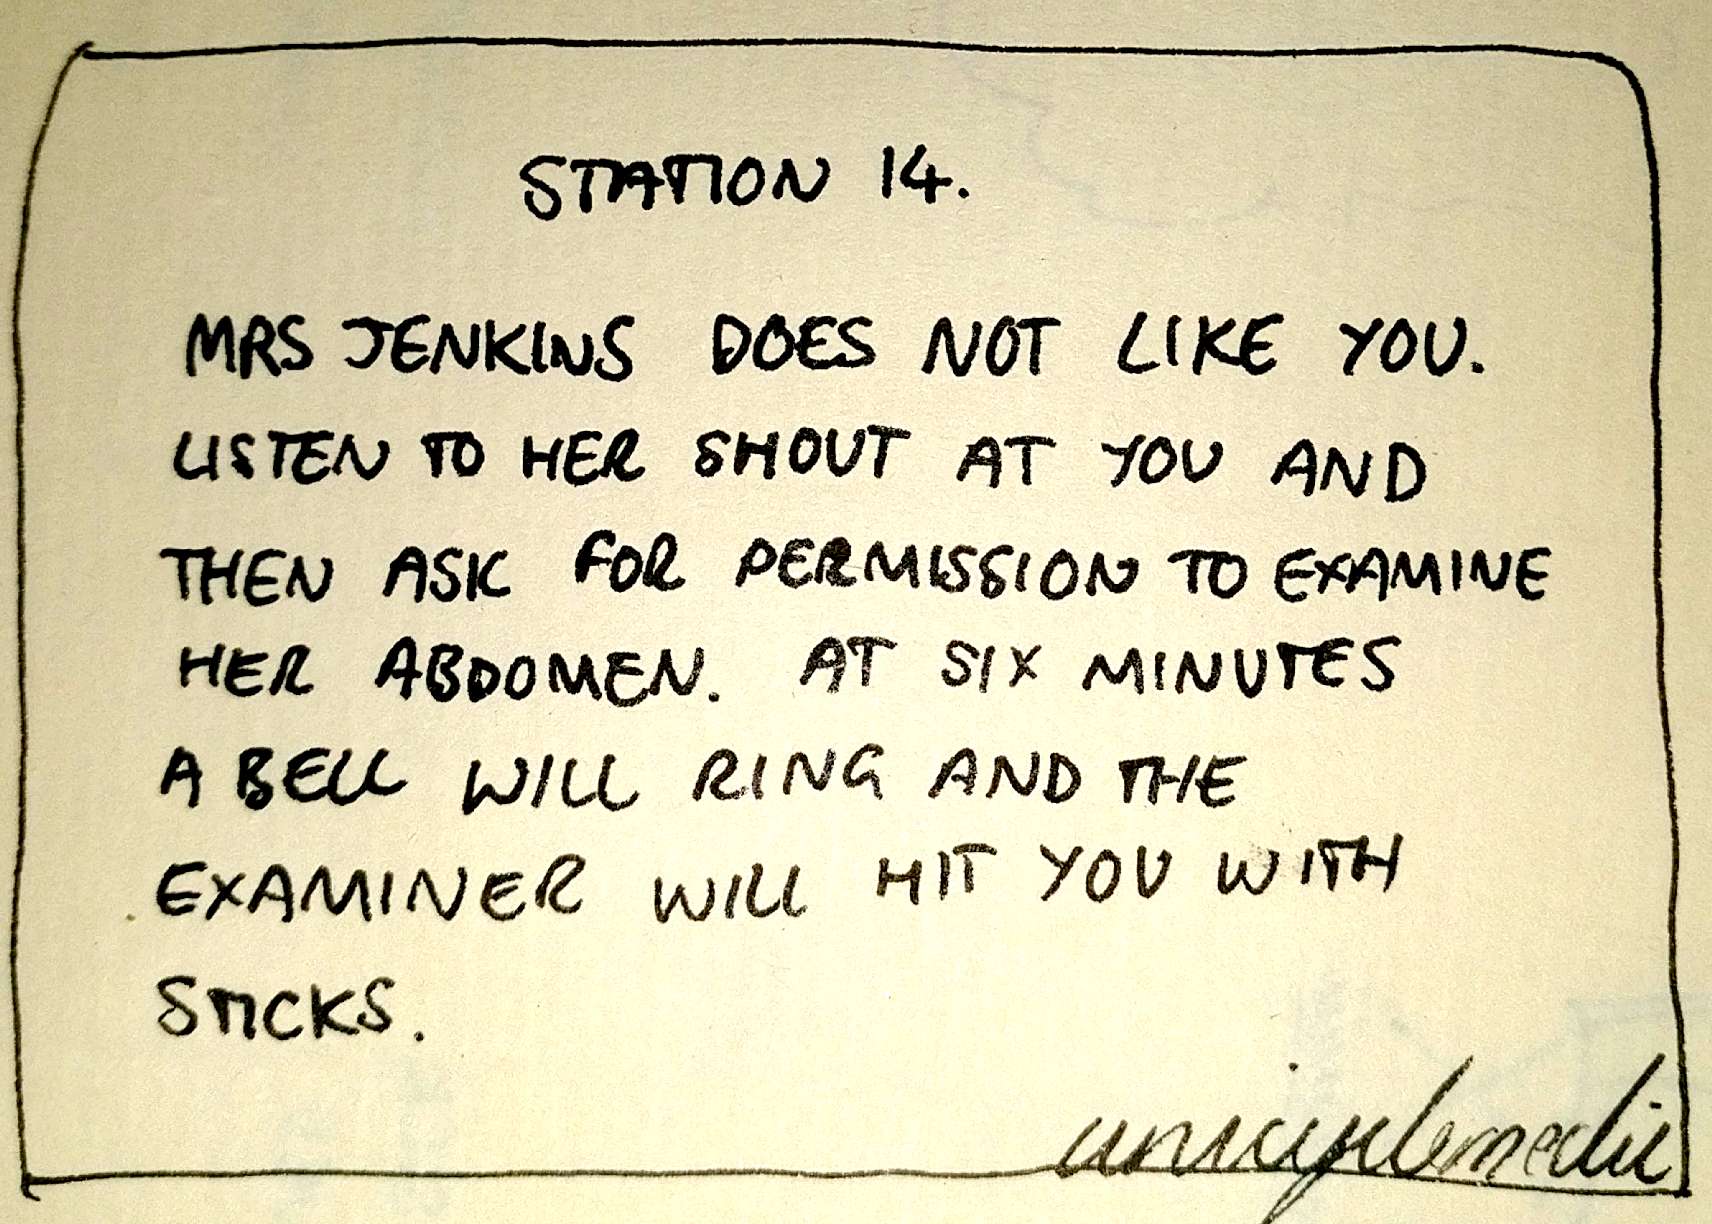 STATION 14.
MRS JENKINS DOES NOT LIKE YOU.
LISTEN TO HER SHOUT AT YOU AND
THEN ASK FOR PERMISSION TO EXAMINE
HER ABDOMEN. AT SIX MINUTES
A BELL WILL RING AND THE
EXAMINER WILL HIT YOU WITH
STICKS.
unicyclemedic